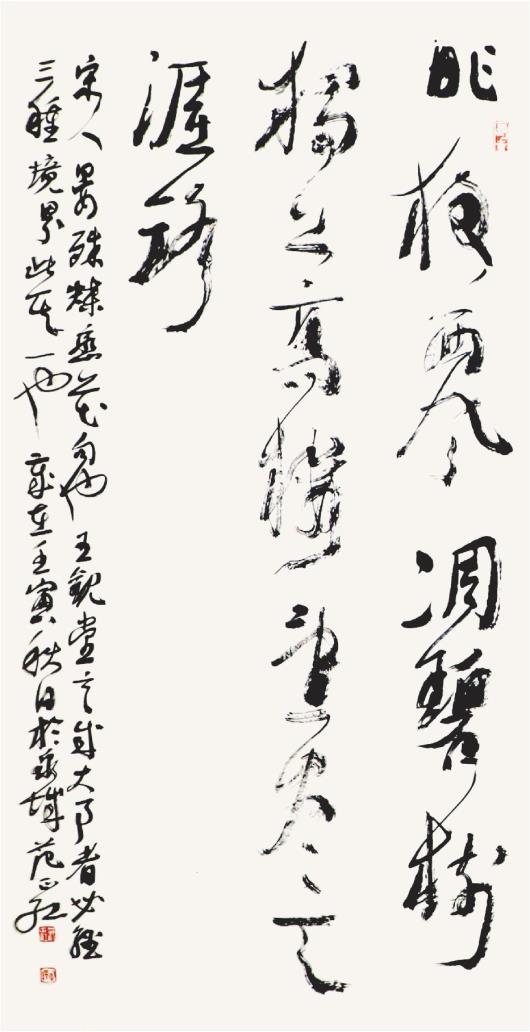 昨夜西風凋碧樹
獨上高樓望尽天
涯路
宋人晏殊蝶戀花句也王觀堂言成大事者必經
三種境界此其一也歲在壬寅秋日於城范正紅